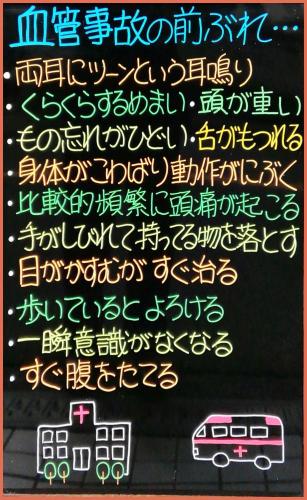 血管事故の前ぶれ…
・両耳にツーンという耳鳴り
・くらくらするめまい・頭が重い
・もの忘れがひどい・舌がもつれる
・身体がこわばり動作がにぶく
・比較的頻繁に頭痛が起こる
・手がしびれて持ってる物を落とす
・目がかすむが すぐ治る
・歩いていると よろける
・一瞬意識がなくなる
・すぐ腹をたてる